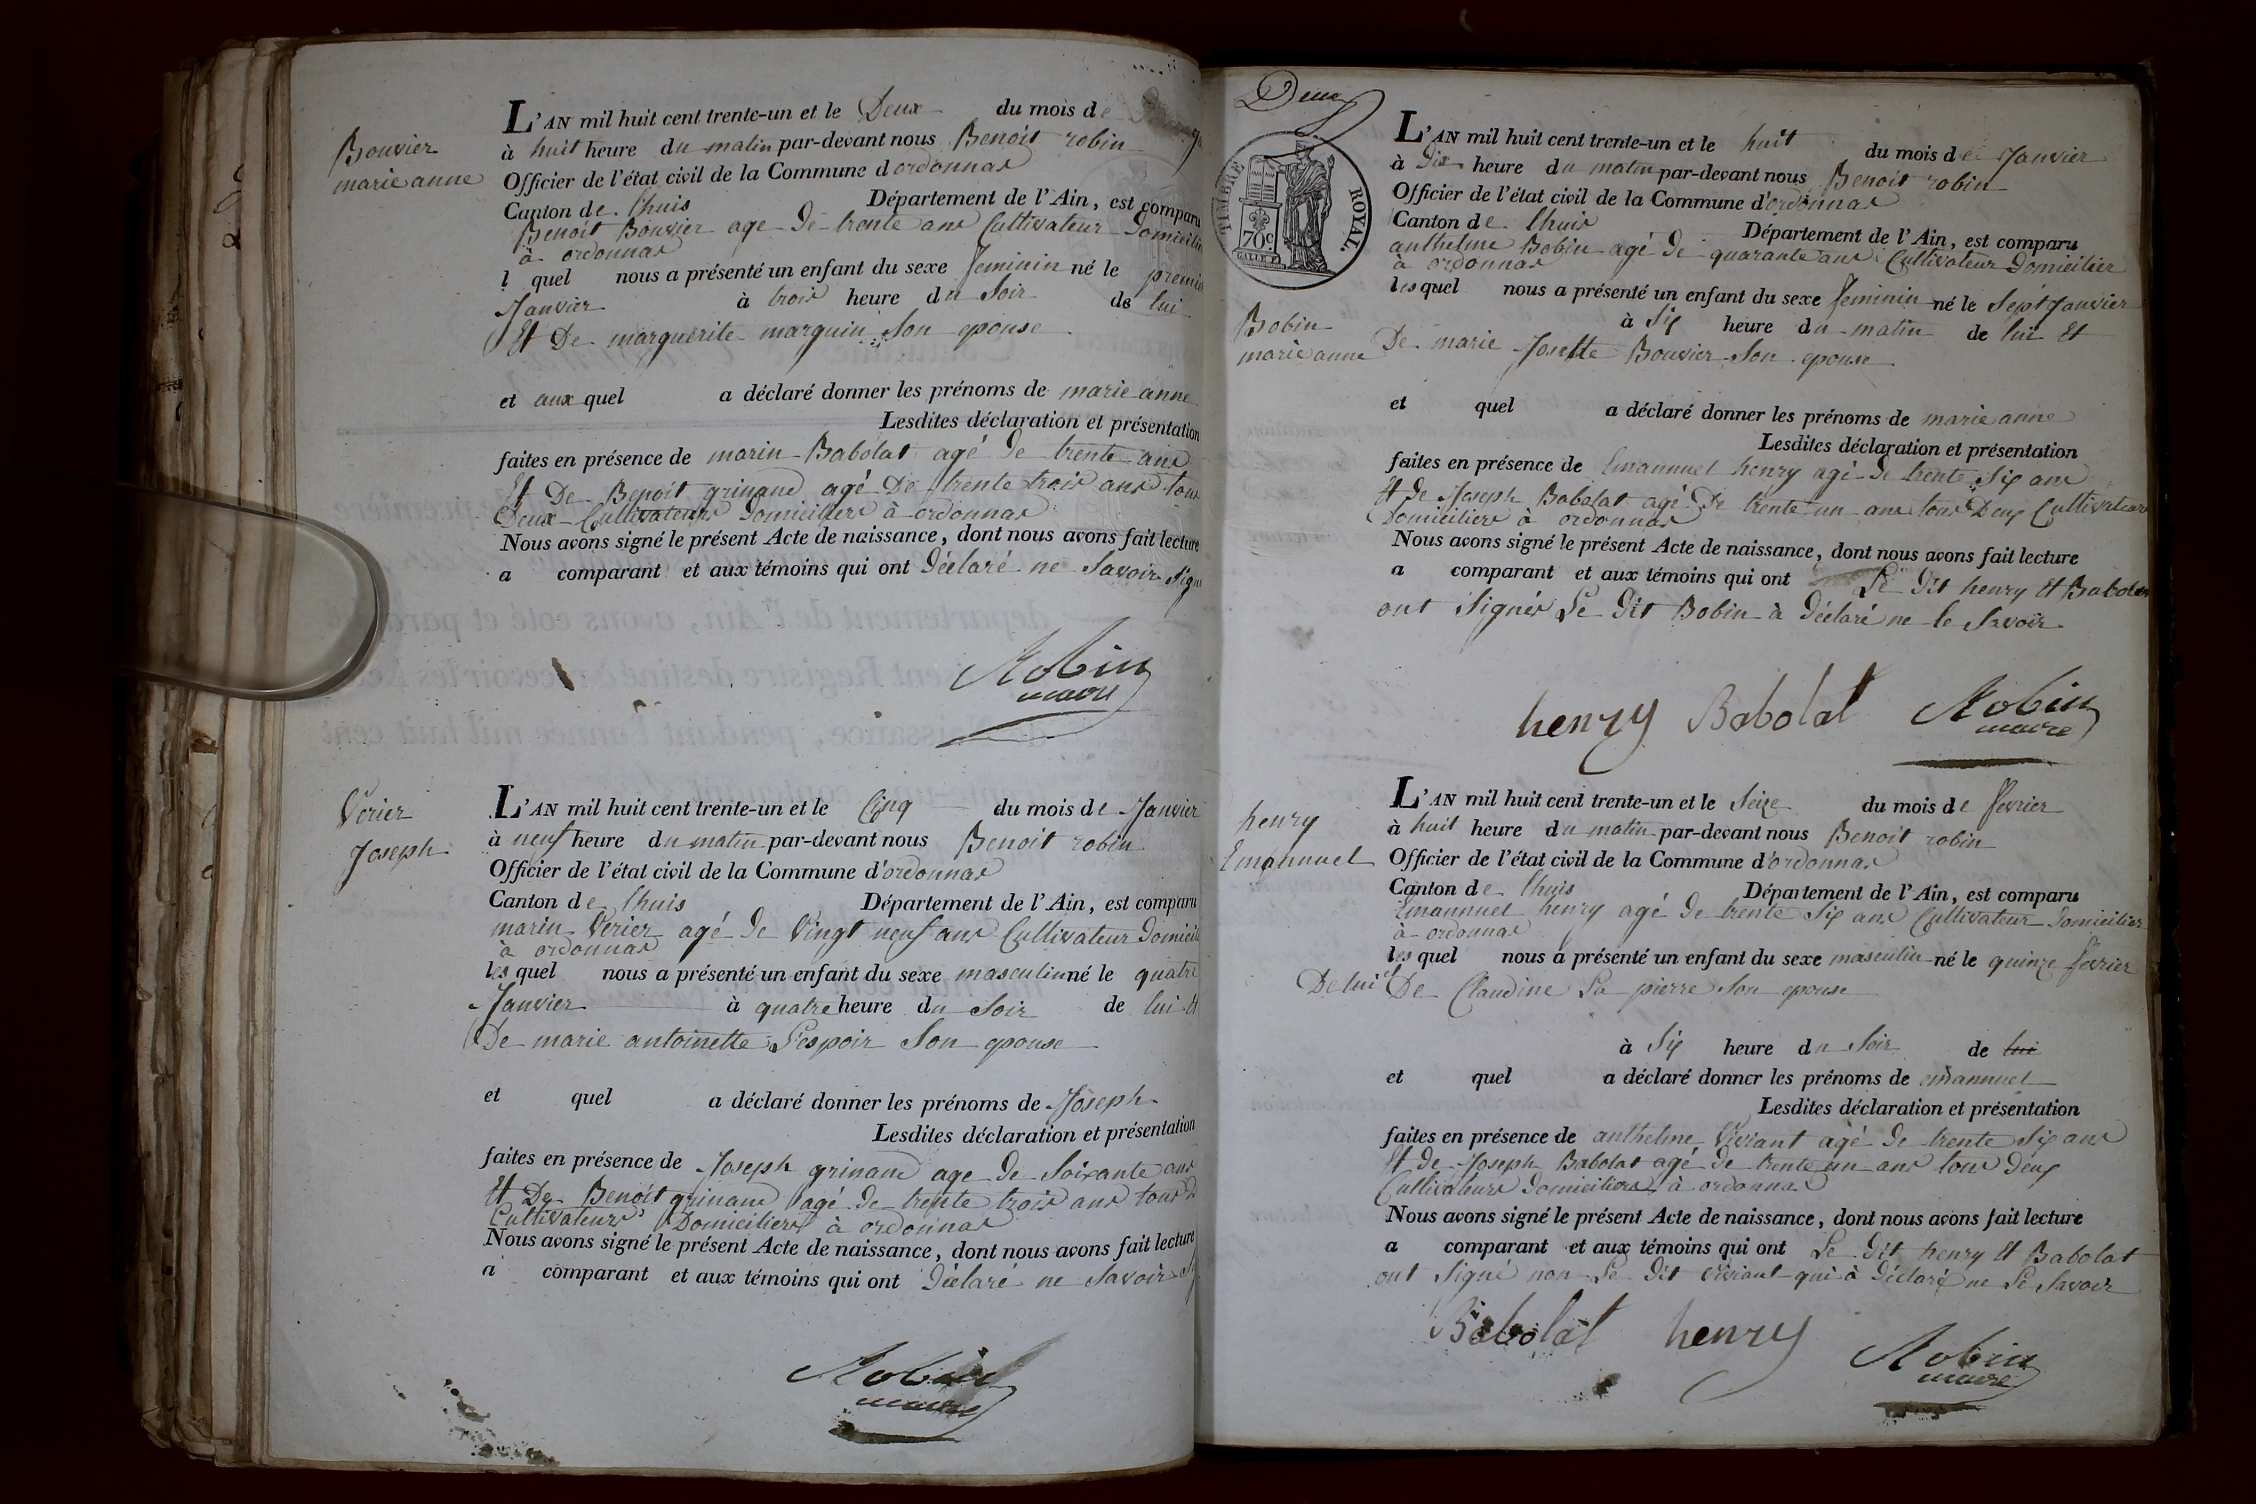 Bouvier
marie anne
L'AN mil huit cent trente-un et le Deux du mois de
à huit heure du matin par-devant nous Benoit robin
Officier de l'état civil de la Commune d ordonnas
Canton de lhuis Département de l'Ain, est comparu
Benoit Bouvier age De trente ans Cultivateur Domicilie
à ordonnas
l quel nous a présenté un enfant du sexe feminin né le premie
Janvier à trois heure du Soir de lui
Et De marguerite marguin Son epouse
et aux quel a déclaré donner les prénoms de marie anne
Lesdites déclaration et présentation
faites en présence de marin Babolat agé de trente ans
Et De Benoit grinand agé De trente trois ans tous
Deux Cultivateurs Domiciliers à ordonnas
Nous avons signé le présent Acte de naissance, dont nous avons fait lecture
a comparant et aux témoins qui ont Déclaré ne Savoir Signe
Robin
maire
Verier
Joseph
L'AN mil huit cent trente-un et le Cinq du mois de Janvier
à neuf heure du matin par-devant nous Benoit robin
Officier de l'état civil de la Commune d'ordonnas
Canton de lhuis Département de l'Ain, est comparu
marin Verier agé De Vingt neuf ans Cultivateur Domicili
à ordonnas
les quel nous a présenté un enfant du sexe masculin né le quatre
Janvier à quatre heure du Soir de lui Et
De marie antoinette Lespoir Son epouse
et quel a déclaré donner les prénoms de Joseph
Lesdites déclaration et présentation
faites en présence de Joseph grinand age De Soixante ans
Et De Benoit grinand agé De trente trois ans tous d
Cultivateurs Domiciliers à ordonnas
Nous avons signé le présent Acte de naissance, dont nous avons fait lecture
a comparant et aux témoins qui ont Déclaré ne Savoir Sig
Robin
maire
Deux
TIMBRE ROYAL.
70c
GALLE F.
Bobin
marie anne
L'AN mil huit cent trente-un et le huit du mois de Janvier
à Dix heure du matin par-devant nous Benoit robin
Officier de l'état civil de la Commune d'ordonnas
Canton de lhuis Département de l'Ain, est comparu
anthelme Bobin agé De quarante ans Cultivateur Domicilier
à ordonnas
les quel nous a présenté un enfant du sexe feminin né le Sept Janvier
à Six heure du matin de lui Et
De marie Josette Bouvier Son epouse
et quel a déclaré donner les prénoms de marie anne
Lesdites déclaration et présentation
faites en présence de Emannuel henry agé De trente Six ans
Et de Joseph Babolat agé De trente un ans tous Deux Cultivateurs
Domiciliers à ordonnas
Nous avons signé le présent Acte de naissance, dont nous avons fait lecture
a comparant et aux témoins qui ont Le Dit henry Et Babolat
ont Signés Le Dit Bobin à Déclaré ne le Savoir
henry Babolat Robin
maire
henry
Emannuel
L'AN mil huit cent trente-un et le Seize du mois de fevrier
à huit heure du matin par-devant nous Benoit robin
Officier de l'état civil de la Commune d'ordonnas
Canton de lhuis Département de l'Ain, est comparu
Emannuel henry agé De trente Six ans Cultivateur Domicilier
à ordonnas
les quel nous a présenté un enfant du sexe masculin né le quinze fevrier
De lui et De Claudine La pierre Son epouse
à Six heure du Soir de lui
et quel a déclaré donner les prénoms de emannuel
Lesdites déclaration et présentation
faites en présence de anthelme Viviant agé De trente Six ans
Et de Joseph Babolat agé De trente un ans tous Deux
Cultivateurs Domiciliers à ordonnas
Nous avons signé le présent Acte de naissance, dont nous avons fait lecture
a comparant et aux témoins qui ont Le Dit henry Et Babolat
ont Signé non Le Dit viviant qui à Déclaré ne Le Savoir
Babolat henry Robin
maire